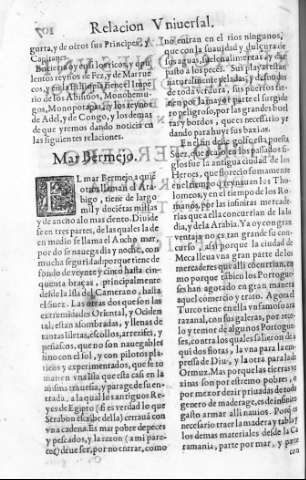 Relacion Vniuersal.
gurta, y de otros sus Principes, y
Capitanes.
lentos reynos de Fez, y de Marruecos,
rio de los Abisinos,
Monopotapa, y los reynos
de Adel, y de Congo, y los demas
de que yremos dando noticia en
las siguientes relaciones.
Mar Bermejo.
EL mar Bermejo, a quiẽ
otros llaman el Arabigo,
tiene de largo
mil y dozientas millas
y de ancho al mas ciento. Diuidese
en tres partes, de las quales la de
en medio se llama el Ancho mar,
por do se nauega dia y noche, con
mucha seguridad porque tiene de
fondo de veynte y cinco hasta cinquenta
braças, principalmente
desde la isla del Camerano, hasta
el Suez. Las otras dos que son las
extremidades Oriental, y Occidental,
estan assombradas, y llenas de
tantas isletas, escollos, arrezifes, y
peñascos, que no son nauegables
sino con el sol, y con pilotos platicos
y experimentados, que se toman
en vna isla que esta casi en la
misma
trada, a la qual los antiguos Reyes
de Egipto (si es verdad lo que
Strabon escriue della) cerrauã con
vna cadena. Es mar pobre de peces
y pescados, y la razon (a mi parecer)
deue ser, por no entrar, como
no entran en el rios ningunos,
que con la suauidad y dulçura de
sus aguas, suelen alimentar, y dar
pasto a los peces. Sus playas estan
naturalmente peladas, y desnudas
de toda verdura, sus puertos
por la mayor parte el surgidero
peligroso, por las grandes bueltas
y bordos, que es necessario yr
dando para huyr sus baxios.
En el fin deste golfo, ha puesto
Suez, que segun dizen los passados
fue la antigua ciudad de los
Heroes, que florecio sumamente
en el tiempo que reynauan los Tholomeos,
y en el tiempo de los Romanos,
por las infinitas mercaderias
que a ella concurrian de la India,
y dela Arabia. Ya oy con gran
ventaja no es tan grande su concurso,
assi porque la ciudad de
Meca lleua vna gran parte de los
mercaderes que alli
mo porque tãbien los Portugueses
han agotado en gran manera
aquel comercio y trato. Agora el
Turco tiene en ella vn famoso atarazanal,
con sus galeras, por recelo
y temor de algunos Portugueses,
contra los quales salieron de
aqui dos flotas, la vna para la empresa
de Diu, y la otra para la de
Ormuz. Mas porque las tierras vezinas
son por estremo pobres, o
por mejor dezir priuadas de todo
genero de madera, es de infinito
gasto armar alli nauios. Porque es
necessario traer la madera y tablas y
los demas materiales desde la Caramania,
parte por mar, y parte